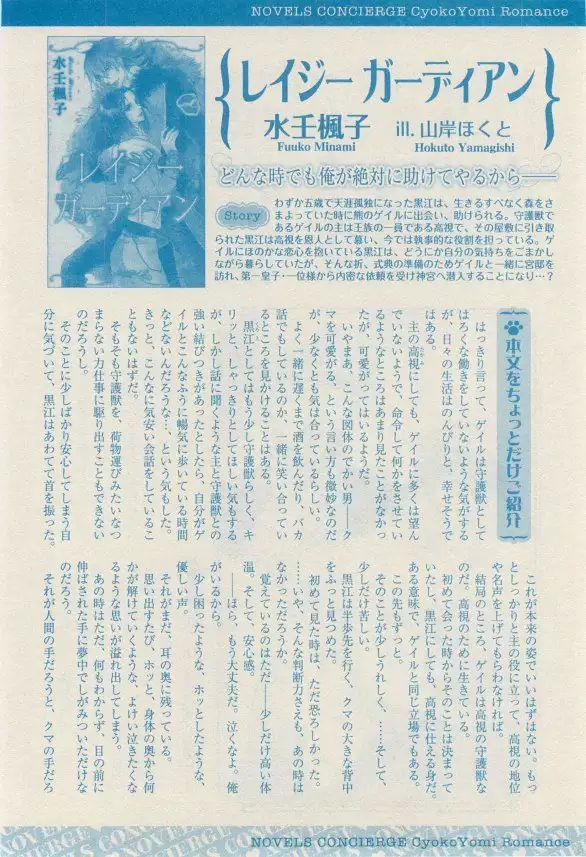 NOVELS CONCIERGE CyokoYomi Romance
水壬楓子
レイジー
ガーディアン
レイジー ガーディアン
水壬楓子 ill. 山岸ほくと
Fuuko Minami Hokuto Yamagishi
どんな時でも俺が絶対に助けてやるから――
Story
わずか五歳で天涯孤独になった黒江は、生きるすべなく森をさ
まよっていた時に熊のゲイルに出会い、助けられる。守護獣で
あるゲイルの主は王族の一員である高視で、その屋敷に引き取
られた黒江は高視を恩人として慕い、今では執事的な役割を担っている。ゲ
イルにほのかな恋心を抱いている黒江は、どうにか自分の気持ちをごまかし
ながら暮らしていたが、そんな折、式典の準備のためゲイルと一緒に宮邸を
訪れ、第一皇子・一位様から内密な依頼を受け神宮へ潜入することになり…?
本文をちょっとだけご紹介
はっきり言って、ゲイルは守護獣として
はろくな働きをしていないような気がする
が、日々の生活はのんびりと、幸せそうで
はある。
主の高視にしても、ゲイルに多くは望ん
でいないようで、命令して何かをさせてい
るようなところはあまり見たことがなかっ
たが、可愛がってはいるようだ。
いやまあ、こんな図体のでかい男――ク
マを可愛がる、という言い方も微妙なのだ
が、少なくとも気は合っているらしい。
よく一緒に遅くまで酒を飲んだり、バカ
話でもしているのか、一緒に笑い合ってい
るところを見かけることはある。
黒江としてはもう少し守護獣らしく、キ
リッと、しゃっきりとしてほしい気もする
が、しかし話に聞くような主と守護獣との
強い結びつきがあったとしたら、自分がゲ
イルとこんなふうに暢気に歩いている時間
などないんだろうな…、という気もした。
きっと、こんなに気安い会話をしているこ
ともないはずだ。
そもそも守護獣を、荷物運びみたいなつ
まらない力仕事に駆り出すこともできない
のだろうし。
そのことに少しばかり安心してしまう自
分に気づいて、黒江はあわてて首を振った。
これが本来の姿でいいはずはない。もっ
としっかりと主の役に立って、高視の地位
や名声を上げてもらわなければ。
結局のところ、ゲイルは高視の守護獣な
のだ。高視のために生きている。
初めて会った時からそのことは決まって
いたし、黒江にしても、高視に仕える身だ。
ある意味で、ゲイルと同じ立場でもある。
この先もずっと。
そのことが少しうれしく、……そして、
少しだけ苦しい。
黒江は半歩先を行く、クマの大きな背中
をふっと見つめた。
初めて見た時は、ただ恐ろしかった。
……いや、そんな判断力さえも、あの時は
なかっただろうか。
覚えているのはただ――少しだけ高い体
温。そして、安心感。
――ほら、もう大丈夫だ。泣くなよ。俺
がいるから。
少し困ったような、ホッとしたような、
優しい声。
それがまだ、耳の奥に残っている。
思い出すたび、ホッと、身体の奥から何
かが解けていくような、よけい泣きたくな
るような思いが溢れ出してしまう。
あの時はただ、何もわからず、目の前に
伸ばされた手に夢中でしがみついただけな
のだろう。
それが人間の手だろうと、クマの手だろ
NOVELS CONCIERGE CyokoYomi Romance